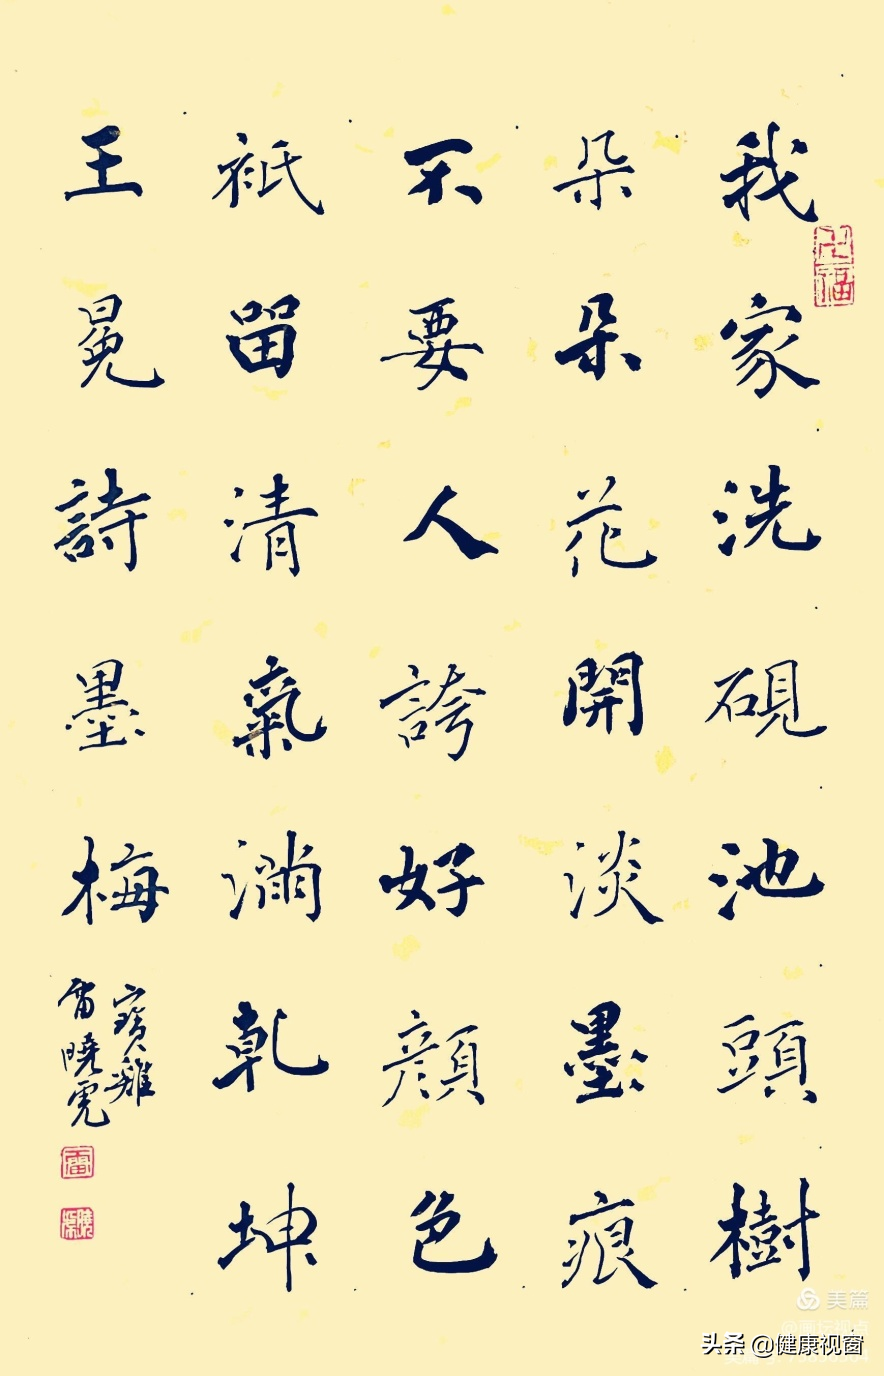 我家洗硯池頭樹
朵朵花開淡墨痕
不要人誇好顔色
衹留清氣滿乾坤
王冕詩墨梅
寶雞
雷曉
美篇
@画坛视点
头条 @健康视窗